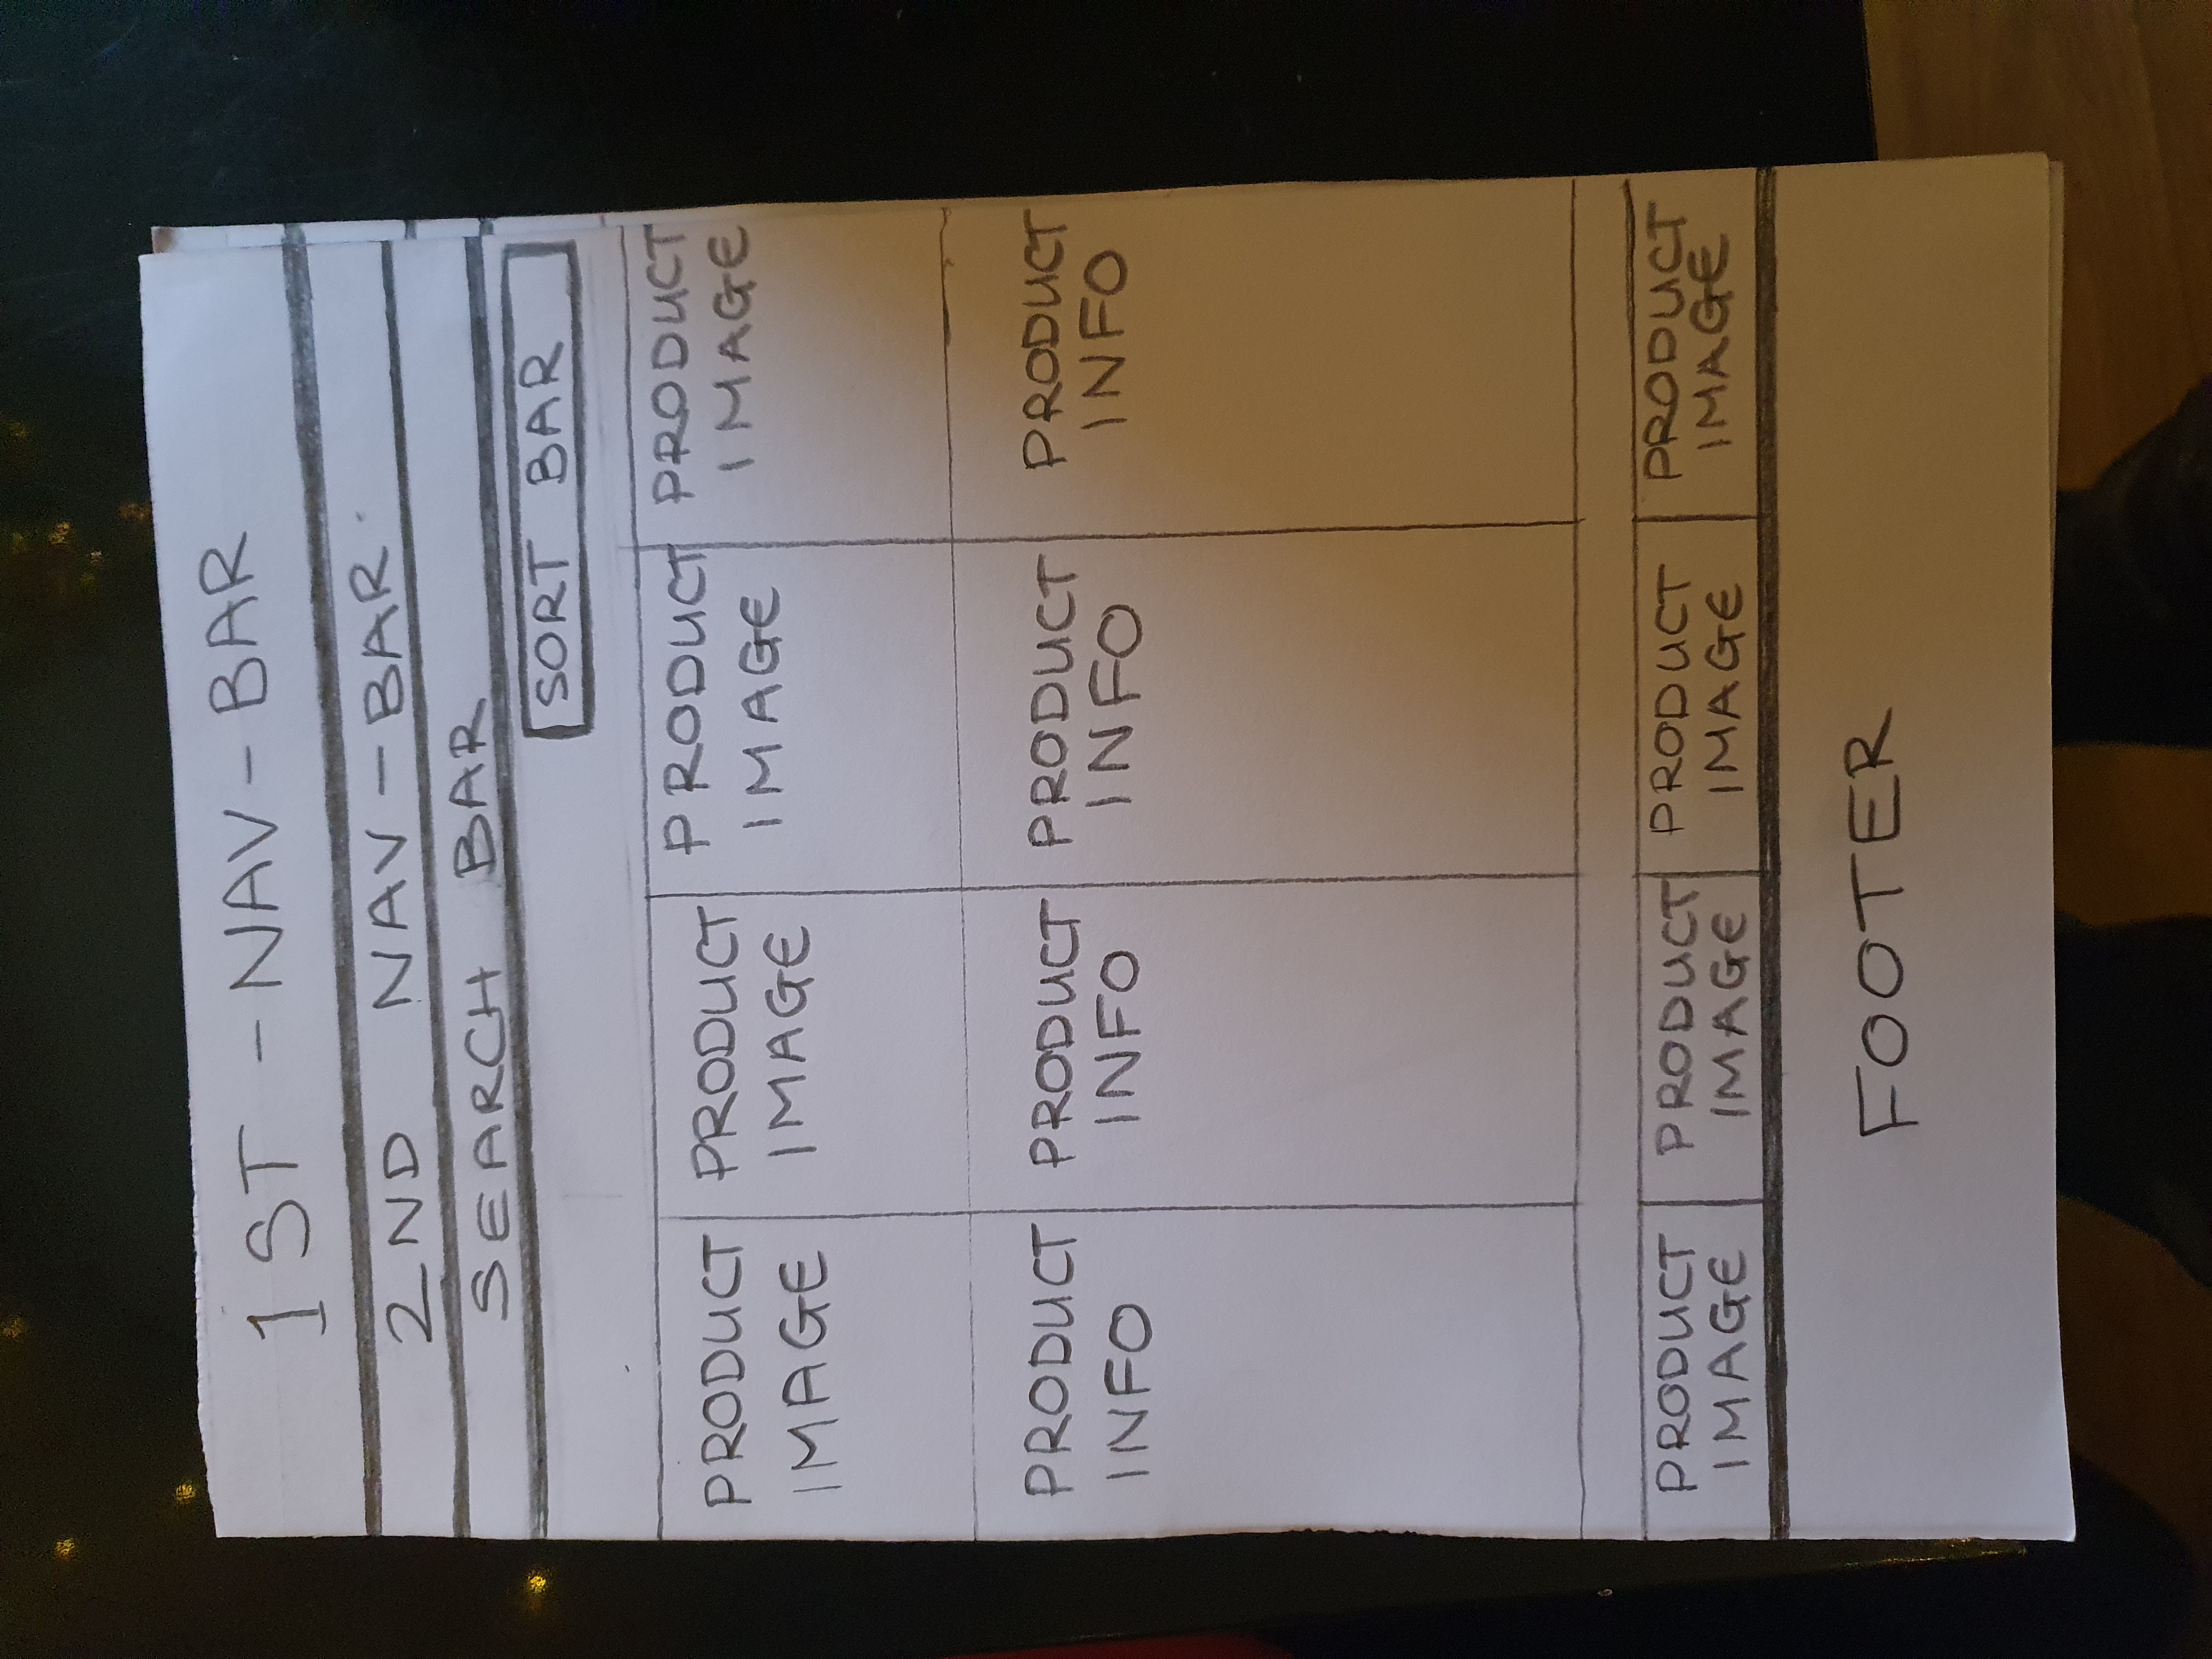 1ST - NAV - BAR
2ND NAV - BAR
SEARCH BAR
SORT BAR
PRODUCT
IMAGE
PRODUCT
IMAGE
PRODUCT
IMAGE
PRODUCT
IMAGE
PRODUCT
INFO
PRODUCT
INFO
PRODUCT
INFO
PRODUCT
INFO
PRODUCT
IMAGE
PRODUCT
IMAGE
PRODUCT
IMAGE
PRODUCT
IMAGE
FOOTER